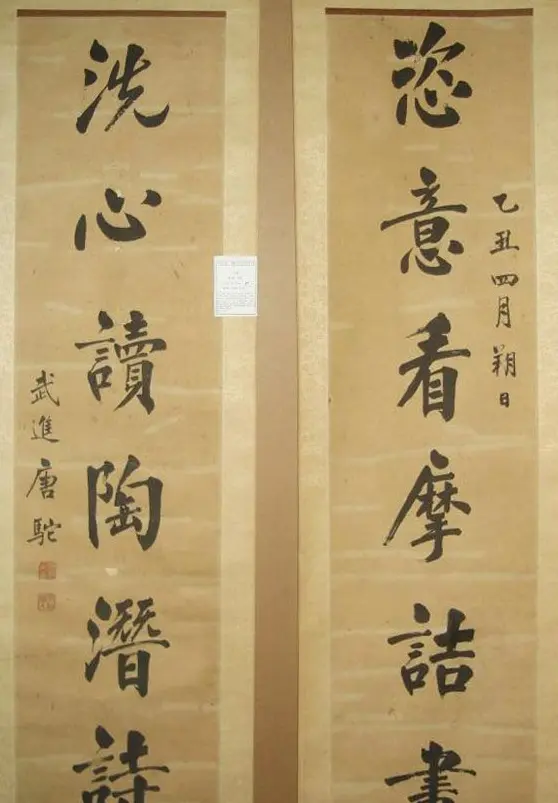 乙丑四月朔日
恣意看摩詰
洗心讀陶潛詩
武進唐駝